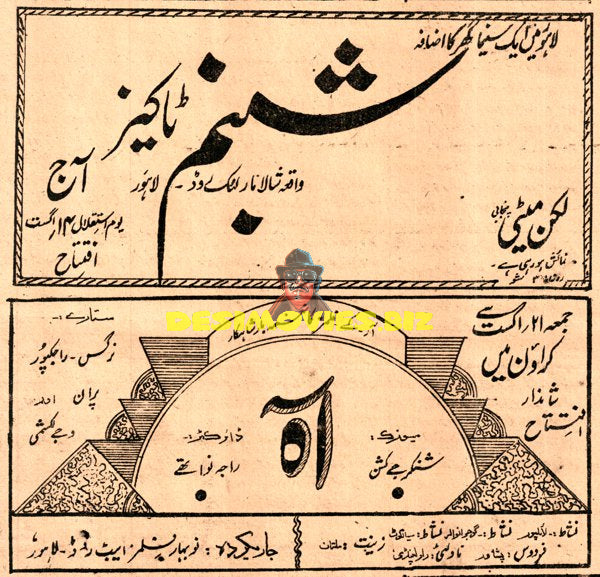 لاہور میں ایک سنیما گھر کا اضافہ
شبنم ٹاکیز
واقعہ شالامار لنک روڈ۔ لاہور
آج
یوم استقلال ۱۴ اگست
افتتاح
لکن میٹی پنجابی
نمائش ہو رہی ہے۔
روزانہ ۳ شو
DESIMOVIES.BIZ
جمعہ ۲۱ اگست سے
کراؤن میں
شاندار
افتتاح
ستارے:۔
نرگس۔ راجکپور
پران اور
وجے لکشمی
آہ
میوزک:۔
شنکر جے کشن
ڈائرکٹر:۔
راجہ نواتھے
نشاط:۔ لائلپور نشاط:۔ گوجرانوالہ نشاط:۔ سیالکوٹ
فردوس:۔ پشاور ناولٹی: راولپنڈی
زینت: ملتان
جاری کردہ: نو بہار فلمز ایبٹ روڈ۔ لاہور